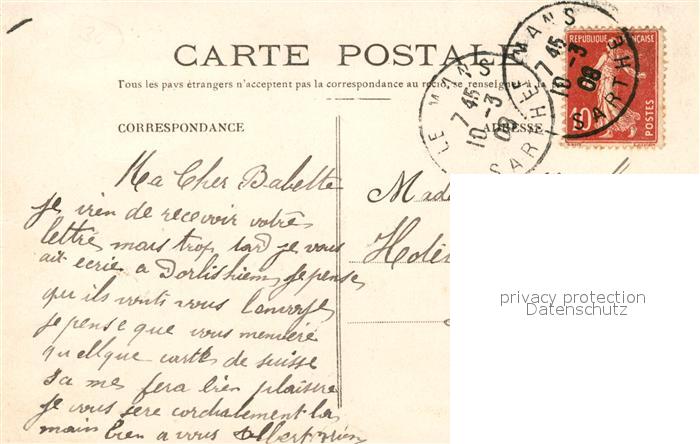 CARTE POSTALE
Tous les pays étrangers n'acceptent pas la correspondance au recto, se renseigner à la
CORRESPONDANCE
ADRESSE
LE MANS
SARTHE
7 45
10 - 3
08
LE MANS
SARTHE
7 45
10 - 3
08
REPUBLIQUE FRANÇAISE
10
POSTES
Ma Cher Babette
je vien de recevoir votre
lettre mais trop tard je vous
ait ecrie a Dorlishiem je pense
qu ils vonts vous l'envoye
je pense que vous
quellque cartes de suisse
sa me fera bien plaisire
je vous sere cordialement la
main bien a vous Albert
Made
Hotel
privacy protection
Datenschutz